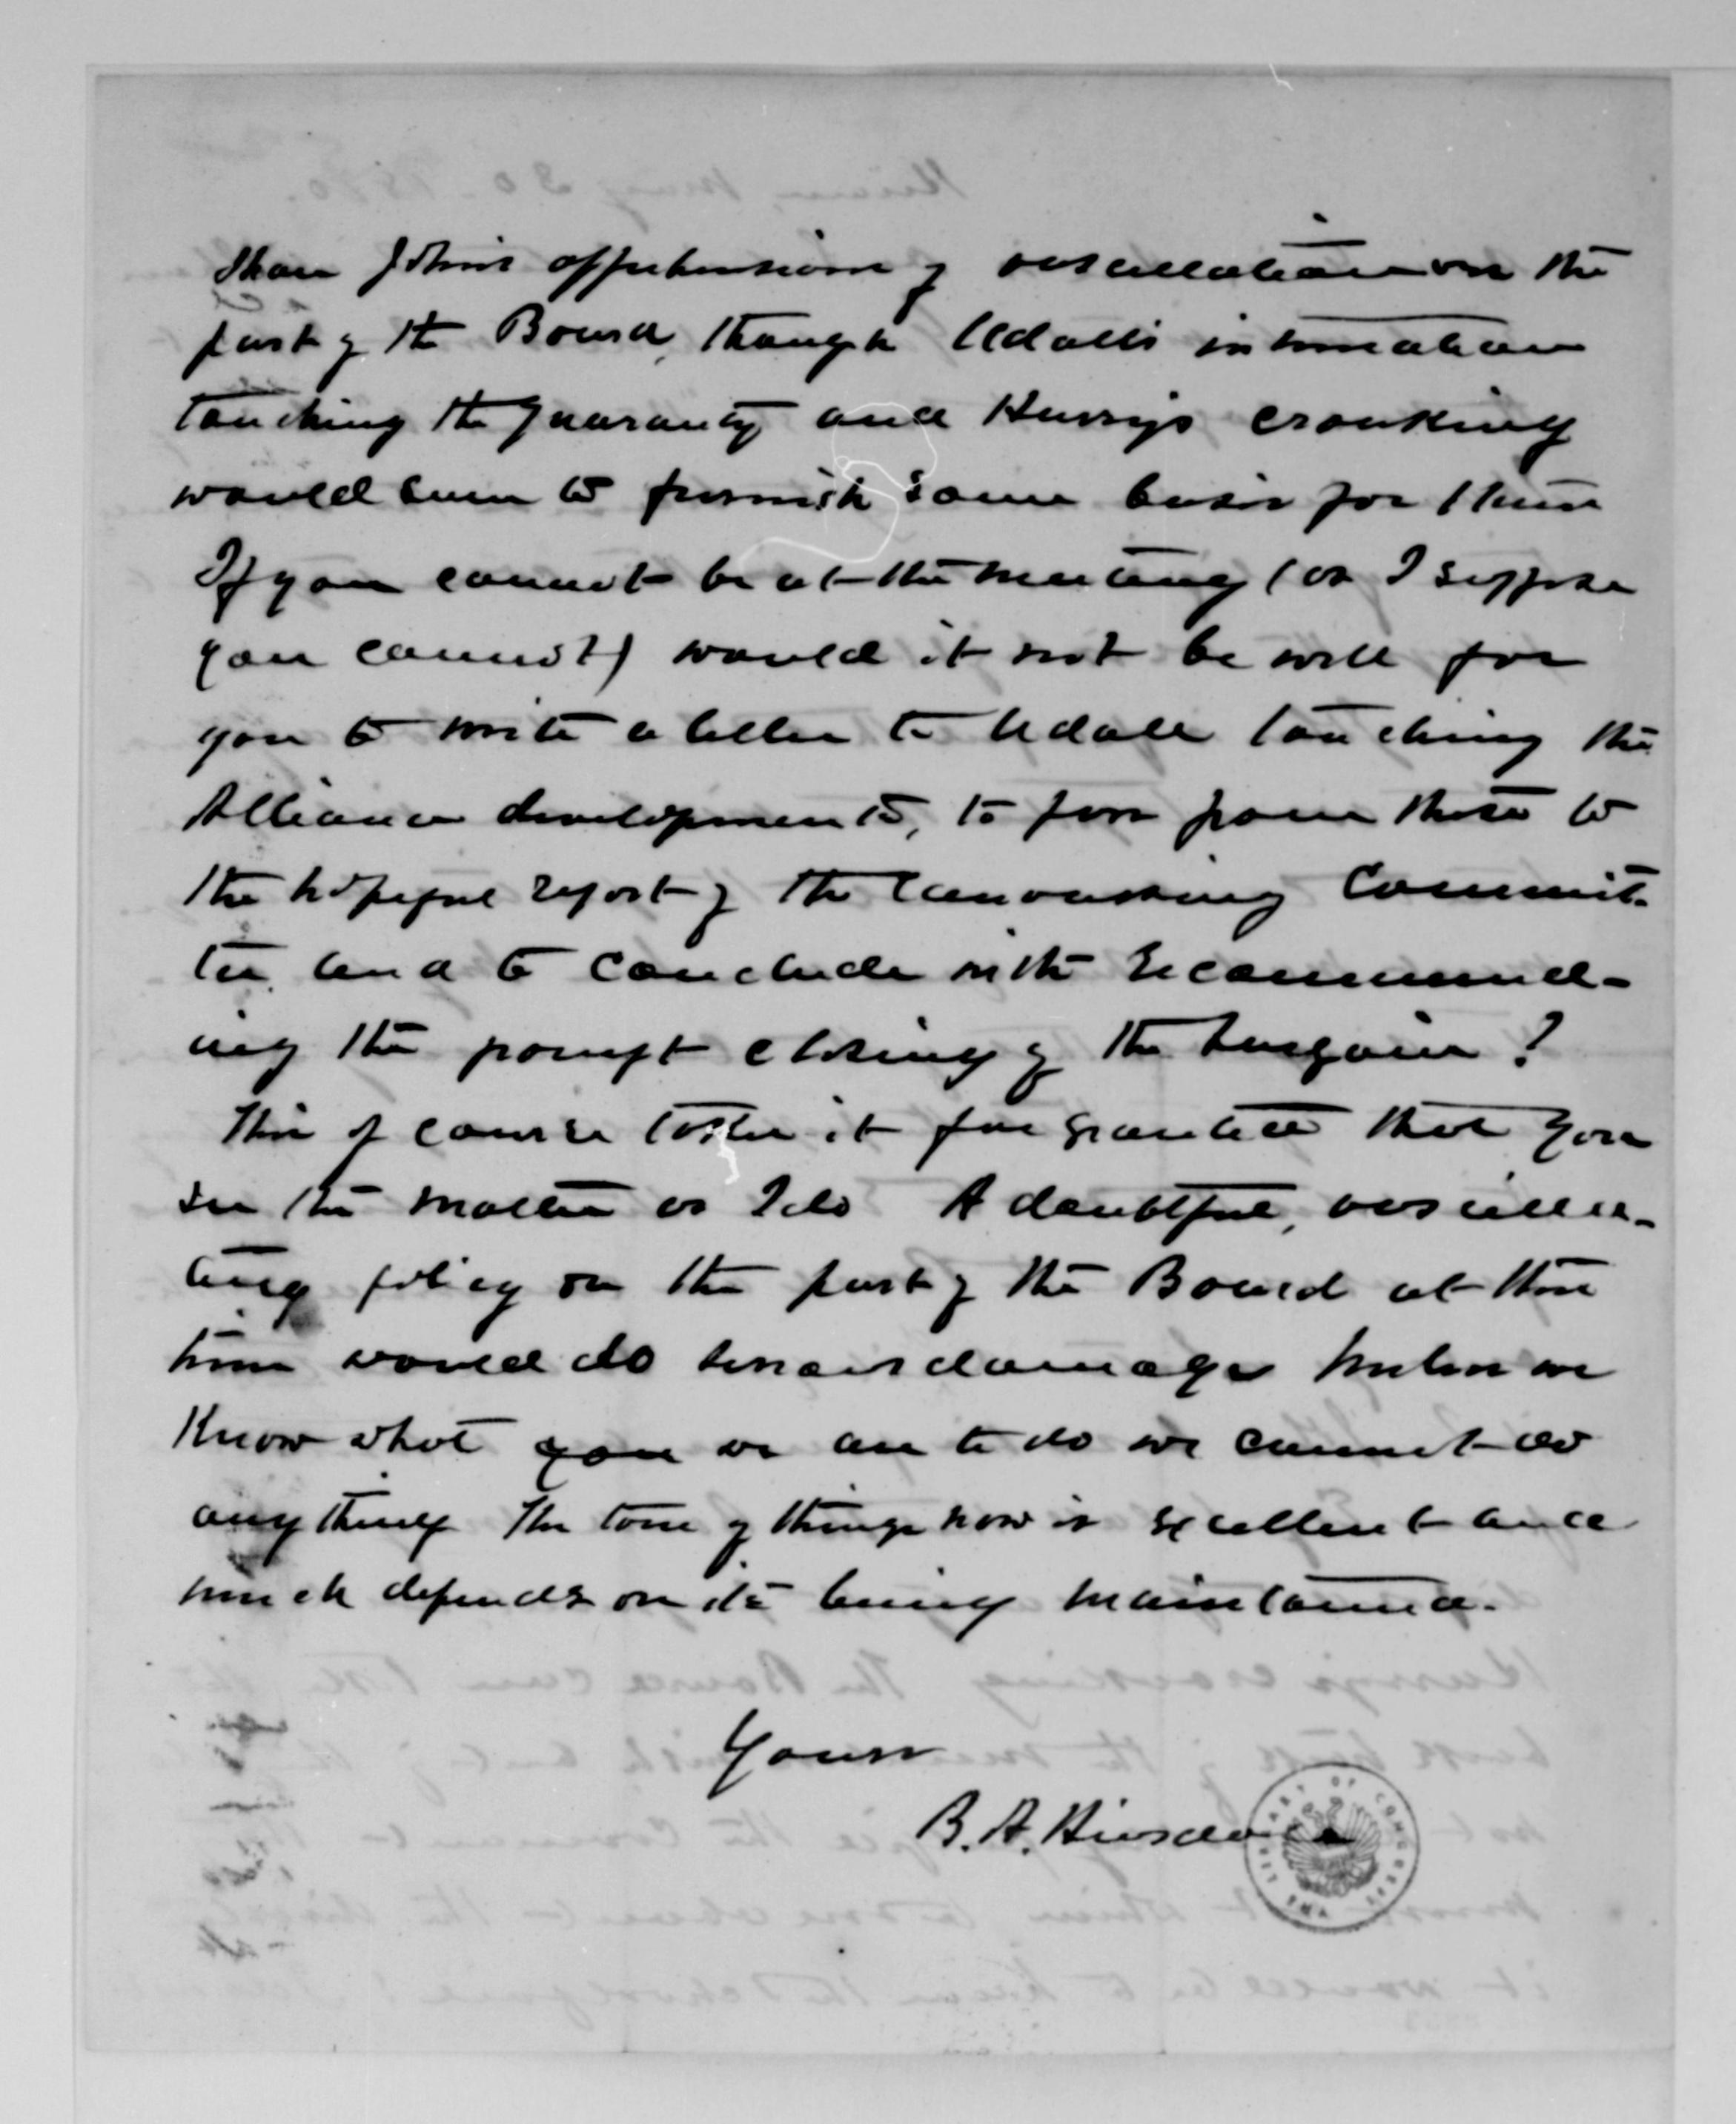 share John's apprehensions of vascillation on the
part of the Board, though Udall's intimation
touching the guaranty and Harry's croaking
would seem to furnish some basis for them
If you cannot be at the meeting (as I suppose
you cannot) would it not be well for
you to write a letter to Udall touching the
Alliance developments, to pass from these to
the hopeful report of the Canvassing Commit-
tee, and to conclude with recommend-
ing the prompt closing of the bargain?
This of course takes it for granted that you
see the matter as I do A doubtful, vascilla-
ting policy on the part of the Board at this
time would do serious damage Unless we
know what you we are to do we cannot do
anything The tone of things now is excellent and
much depends on its being maintained.
Yours
B. A. Hinsdale
THE LIBRARY OF CONGRESS